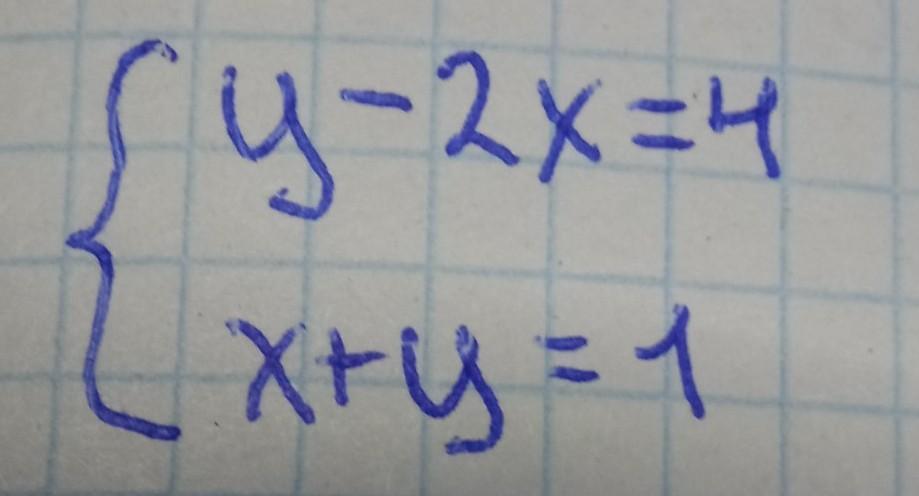 y-2x=4
x+y=1